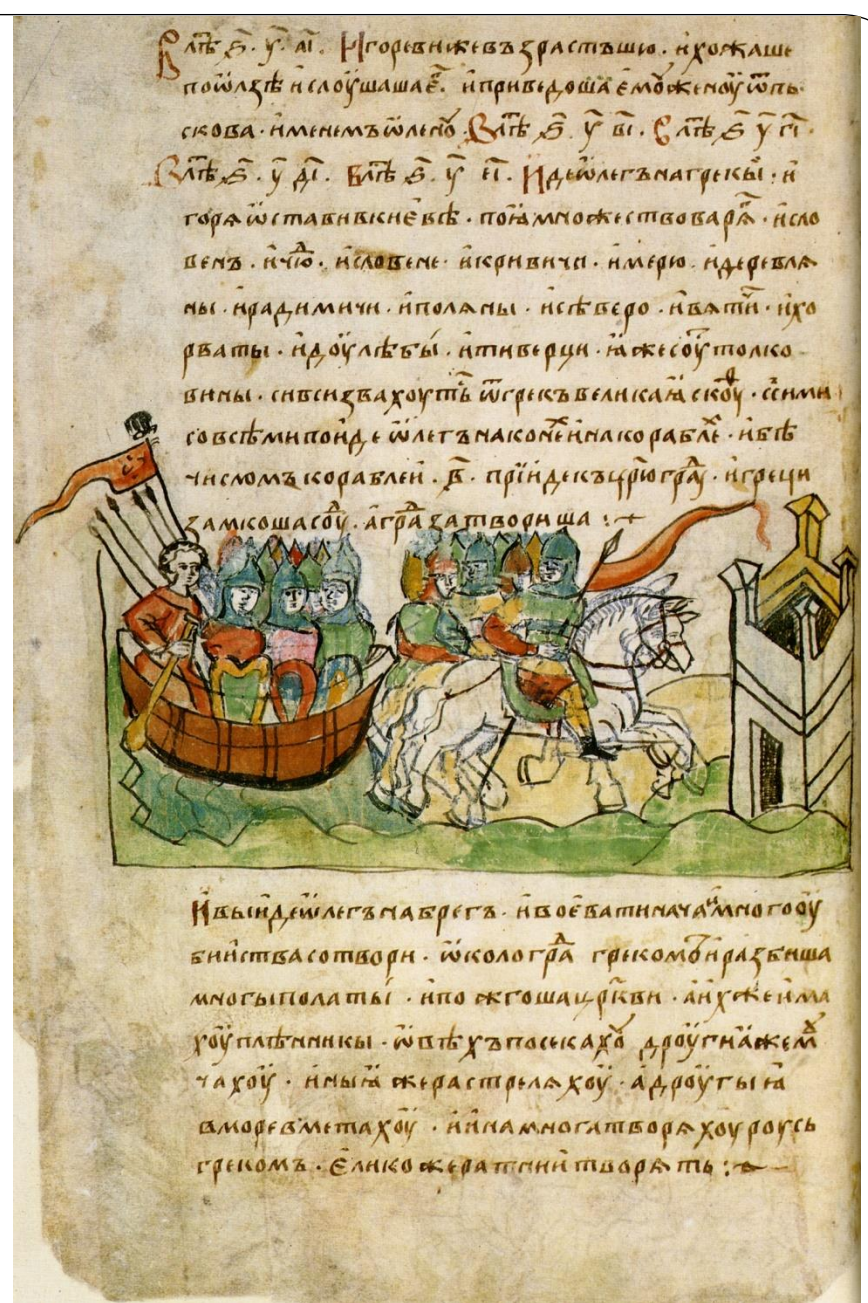 В лѣт҃ ѕ҃ . у҃ . аі҃ . Игореви же възрастъшю . и хожаше
по ѡлзѣ и слоушаша е҃ . и приведоша емоу женоу ѿ пь
скова . именемъ ѡленоу . В лѣт҃ ѕ҃ у҃ ві҃ . В лѣт҃ ѕ҃ у҃ гі҃ .
В лѣт҃ ѕ҃ . у҃ ді҃ . В лѣт҃ ѕ҃ . у҃ еі҃ . Иде ѡлегъ на грекы . и
горя ѡставив киевѣ . поꙗ множество варѧ҃ . и сло
венъ . и чю҃ . и словене . и кривичи . и мерю . и деревлѧ
ны . и радимичи . и полѧны . и сѣверо . и вѧтичи . и хо
рваты . и доулѣбы . и тиверци . ꙗже соуⷮ толко
вины . си вси звахоутьⷭ ѿ грекъ великаꙗ скоуⷴ . с сими
со всѣми поиде ѡлегъ на конеⷯ и на кораблеⷯ . и бѣ
числомъ кораблей . в҃ . прїиде къ цр҃ю граⷣу . и греци
замкоша соуⷣ . а граⷣ затвориша :
И выиде ѡлегъ на брегъ . и воевати нача и много оу
биийства сотвори . ѡколо граⷣ грекомъ и разбиша
многы полаты . и пожгоша цр҃кви . а ихже има
хоу плѣнникы . ѡвѣхъ посекахоу дроугиꙗ же моу
чахоу . иныꙗ же растрелѧхоу . а дроугыꙗ
в море вметахоу . и ина многа творѧхоу роусь
грекомъ . елико же ратнии творѧть :